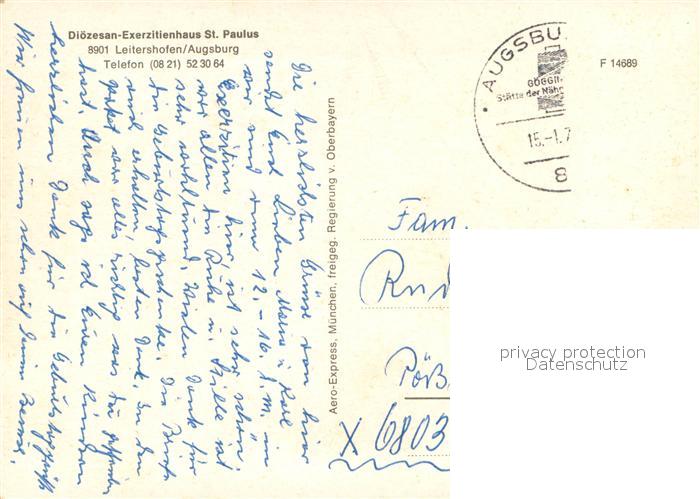 Diözesan-Exerzitienhaus St. Paulus
8901 Leitershofen/Augsburg
Telefon (08 21) 52 30 64
AUGSBU
GÖGGI
Stätte der Nähr
15.-1.7
8
F 14689
Die herzlichsten Grüsse von hier
sendet Euch Lieben Maria u Karl
wir sind vom 12. - 16. d. M. in
Exerzitien hier, ist sehr schön.
vor allem die Ruhe u. Stille ist
sehr wohltuend. Vielen Dank für
die Geburtstagsgeschenke. Die Briefe
sind erhalten, besten Dank. In den
Paket war alles richtig was Du
hast. Auch sage ich Euren Kindern
herzlichen Dank für die Geburtstagsgrüße
Wir freuen uns schon auf Deinen
Aero-Express, München, freigeg. Regierung v. Oberbayern
Fam.
Rud
Pöß
X 6803
privacy protection
Datenschutz